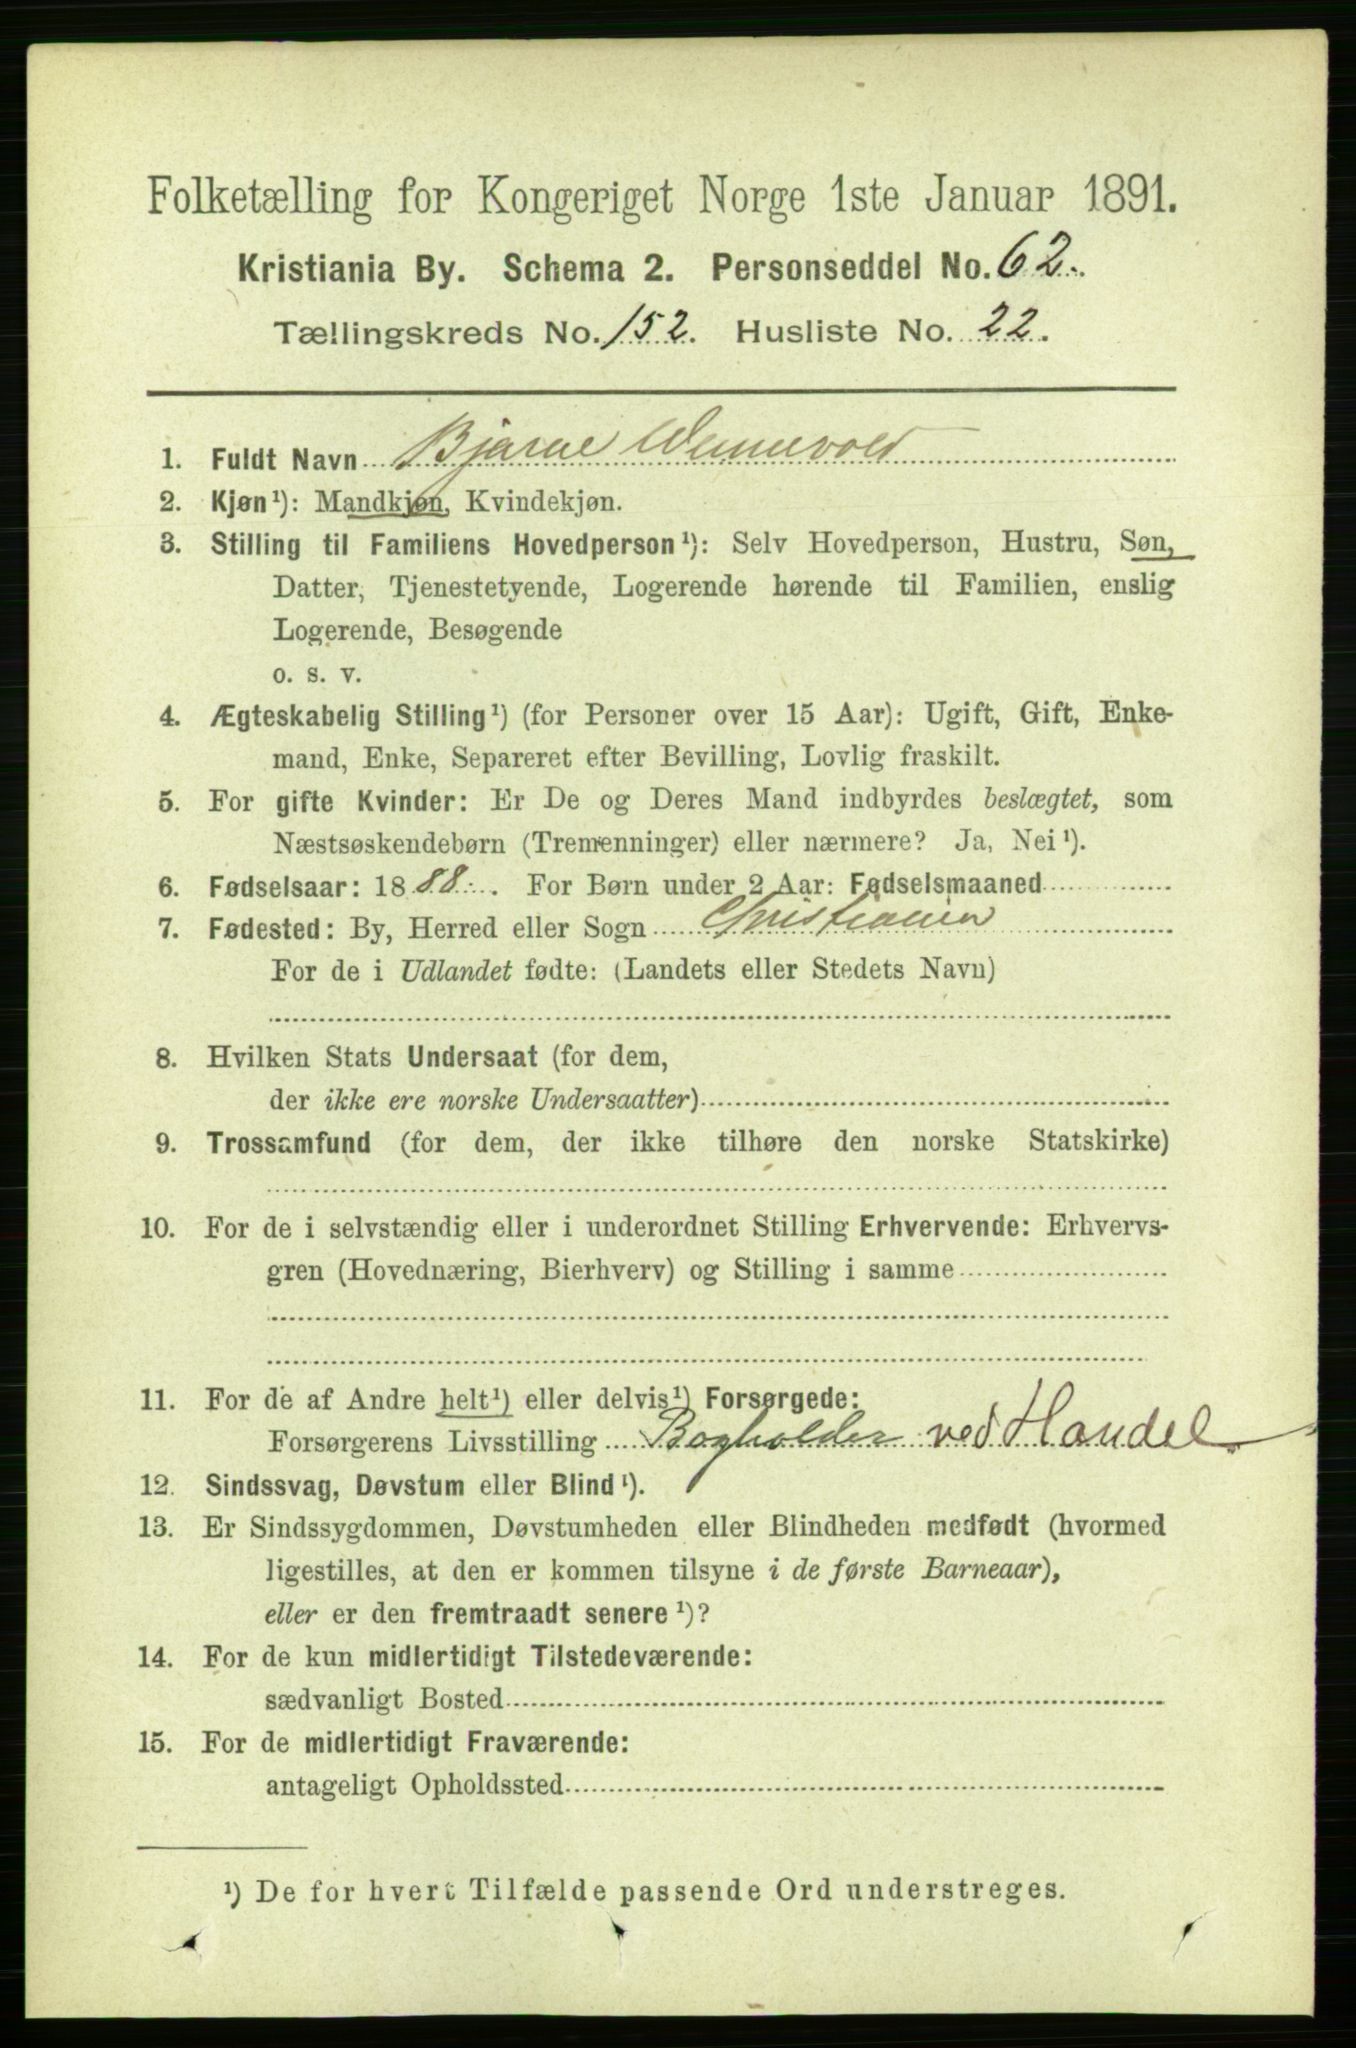 Folketælling for Kongeriget Norge 1ste Januar 1891.
Kristiania By. Schema 2. Personseddel No. 62.
Tællingskreds No. 152. Husliste No. 22.
1. Fuldt Navn Bjarne Wennevold
2. Kjøn¹): Mandkjøn, Kvindekjøn.
3. Stilling til Familiens Hovedperson¹): Selv Hovedperson, Hustru, Søn,
Datter, Tjenestetyende, Logerende hørende til Familien, enslig
Logerende, Besøgende
o. s. v.
4. Ægteskabelig Stilling¹) (for Personer over 15 Aar): Ugift, Gift, Enke-
mand, Enke, Separeret efter Bevilling, Lovlig fraskilt.
5. For gifte Kvinder: Er De og Deres Mand indbyrdes beslægtet, som
Næstsøskendebørn (Tremenninger) eller nærmere? Ja, Nei¹).
6. Fødselsaar: 1888. For Børn under 2 Aar: Fødselsmaaned
7. Fødested: By, Herred eller Sogn Christiania
For de i Udlandet fødte: (Landets eller Stedets Navn)
8. Hvilken Stats Undersaat (for dem,
der ikke ere norske Undersaatter)
9. Trossamfund (for dem, der ikke tilhøre den norske Statskirke)
10. For de i selvstændig eller i underordnet Stilling Erhvervende: Erhvervs-
gren (Hovednæring, Bierhverv) og Stilling i samme
11. For de af Andre helt¹) eller delvis¹) Forsørgede:
Forsørgerens Livsstilling Bogholder ved Handel
12. Sindssvag, Døvstum eller Blind¹).
13. Er Sindssygdommen, Døvstumheden eller Blindheden medfødt (hvormed
ligestilles, at den er kommen tilsyne i de første Barneaar),
eller er den fremtraadt senere¹)?
14. For de kun midlertidigt Tilstedeværende:
sædvanligt Bosted
15. For de midlertidigt Fraværende:
antageligt Opholdssted
¹) De for hvert Tilfælde passende Ord understreges.